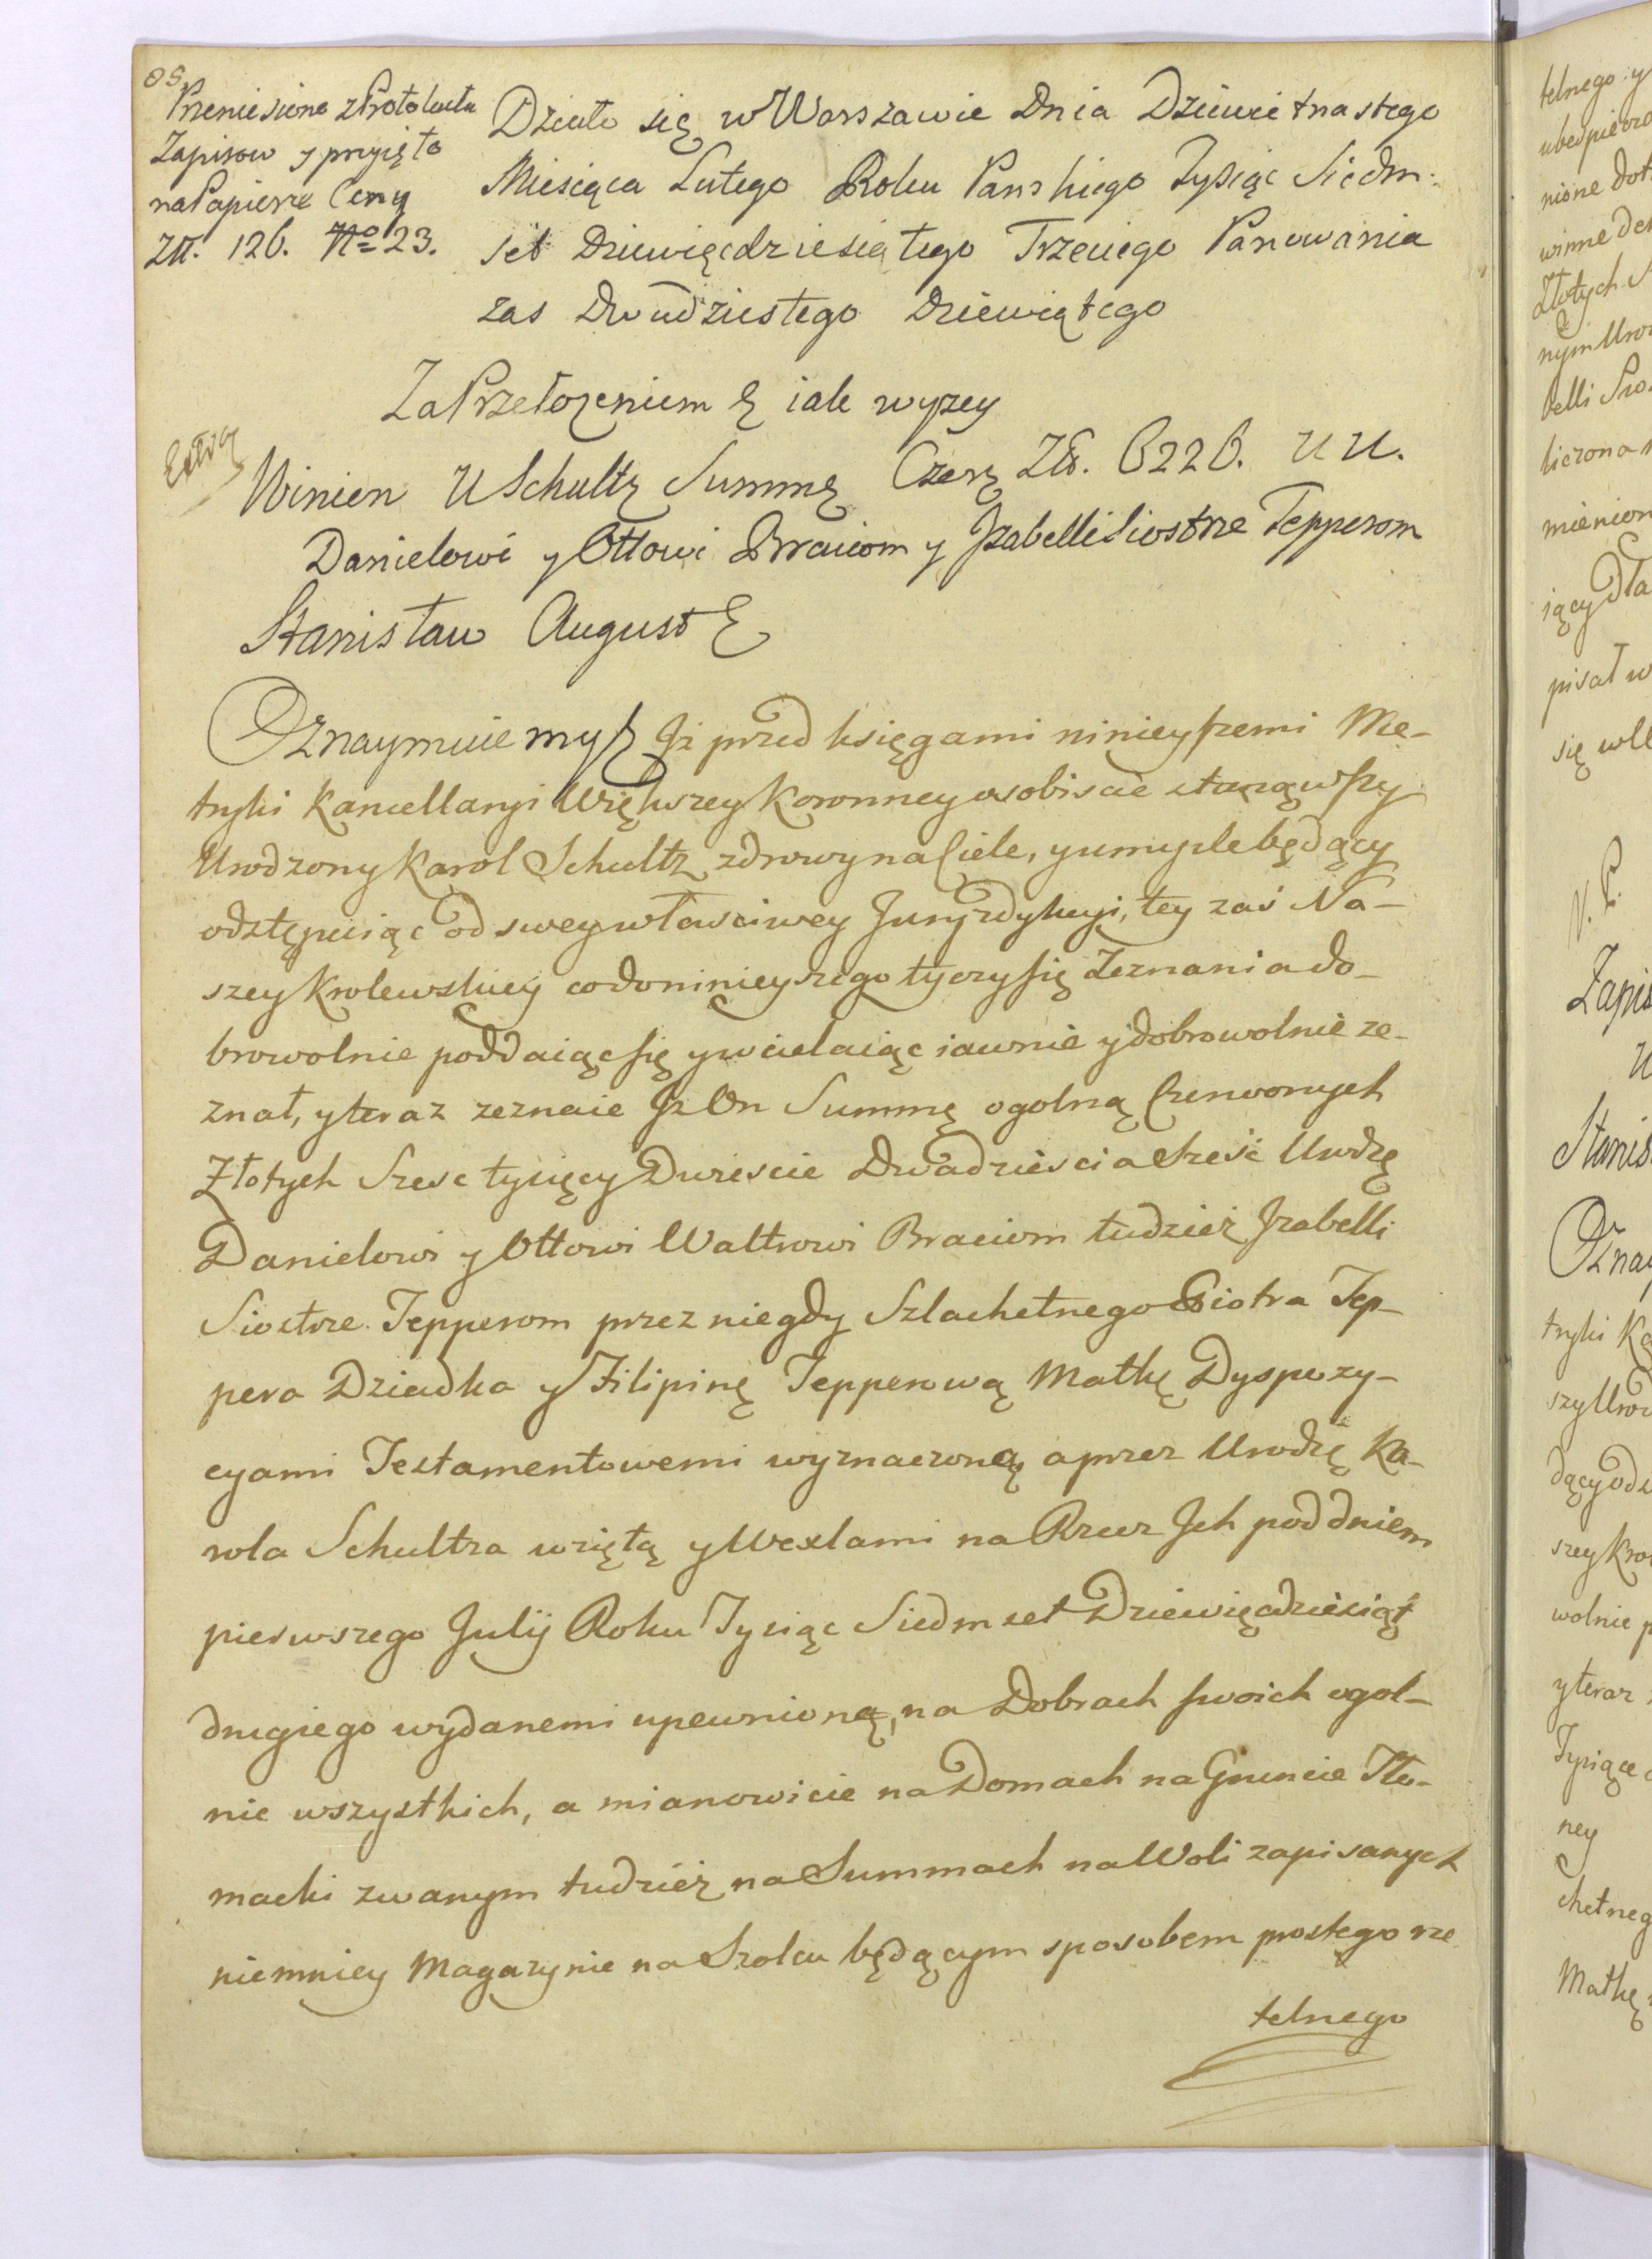 Przeniesiono z Protokułu
Zapisow y przyięto
na Papierze Ceny
Złł. 126. No 23.
Działo się w Warszawie Dnia Dziewietnastego
Miesiąca Lutego Roku Panskiego Tysiąc Siedm-
set Dziewięcdziesiątego Trzeciego Panowania
zas Dwudziestego Dziewiątego
Za Przełozeniem & iak wyzey
Winien U Schultz Summę Czer. Zł. 6226. UU.
Danielowi y Ottowi Braciom y Jzabelli Siostrze Tepperom
Stanisław August &
Oznaymuiemy & Jz przed księgami ninieyszemi Me-
tryki Kancellaryi Większey Koronney osobiscie stanąwszy
Urodzony Karol Schultz zdrowy na Ciele, y umysle będący
odstępuiąc od swey właściwey Juryzdykcyi, tey zaś Na-
szey Krolewskiey co do ninieyszego tyczy się Zeznania do-
browolnie poddaiąc się y wcielaiąc iawnie y dobrowolnie ze-
znał, y teraz zeznaie Jz On Summę ogolną Czerwonych
Złotych Szesc tysięcy Dwieście Dwadzieścia Sześć Urodzę
Danielowi y Ottowi Waltrowi Braciom tudzież Jzabelli
Siostrze Tepperom przez niegdy Szlachetnego Piotra Tep-
pera Dziadka y Filipinę Tepperową Matkę Dyspozy-
cyami Testamentowemi wyznaczoną a przez Urodzę Ka-
rola Schultza wziętą y Wexlami na Rzecz Jch pod dniem
pierwszego Julij Roku Tysiąc Siedmset Dziewięcdziesiąt
drugiego wydanemi upewnioną, na Dobrach swoich ogol-
nie wszystkich, a mianowicie na Domach na Gruncie Tłu-
macki zwanym tudzież na Summach na Woli zapisanych
niemniey Magazynie na Szolcu będącym sposobem prostego rze
telnego